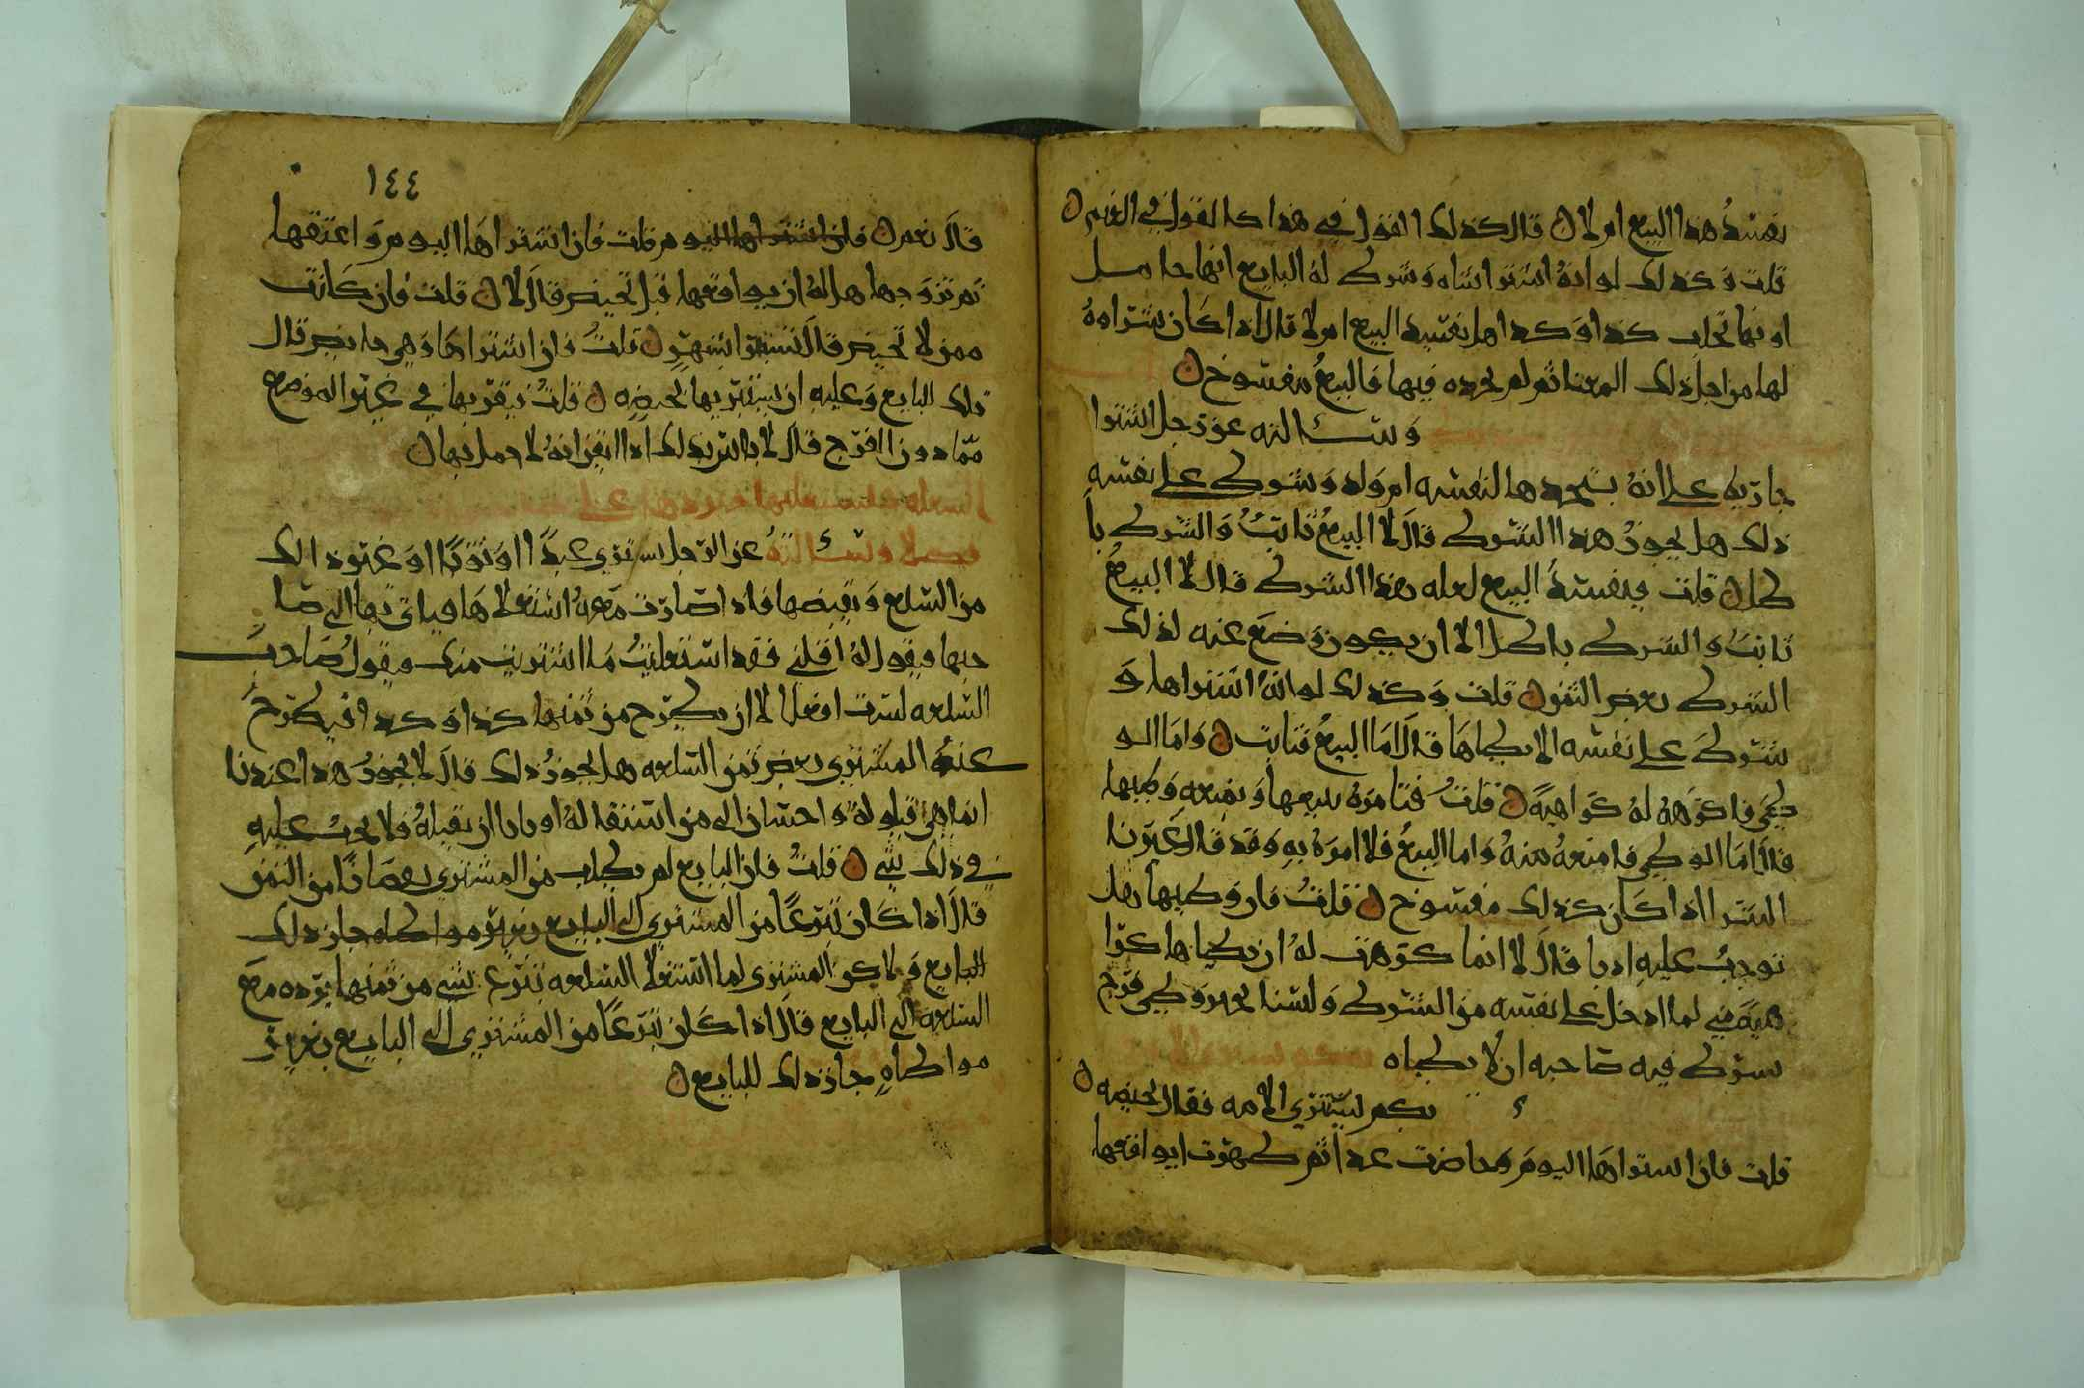 يفسد هذا البيع ام لا قال كذلك القول في هذا كالقول في الغنم
قلت وكذلك لو انه اشترا شاه وشرط له البايع انها حامل
او انها تحلب كذا وكذا هل يفسد البيع ام لا قال اذا كان شراوه
لها من اجل ذلك المعنا ثم لم يجده فيها فالبيع مفسوخ
وسالته عن رجل اشترا
جاريه على انه يتخدها لنفسه ام ولد وشرط على نفسه
ذلك هل يجوز هذا الشرط قال لا البيع ثابت والشرط با
طل قلت فيفسد البيع لعله هذا الشرط قال لا البيع
ثابت والشرط باطل الا ان يكون وضع عنه لذلك
الشرط بعض الثمن قلت وكذلك لو انه اشتراها و
شرط على نفسه الا يطاها قال اما البيع فثابت واما الو
طي فاكرهه له كراهية قلت فتامره ببيعها وبمنعه وطيها
قال اما الوطي فامنعه منه واما البيع فلا امره به وقد قال غيرنا
الشرا اذا كان كذلك مفسوخ قلت فان وطيها هل
توجب عليه ادبا قال لا انما كرهت له ان يطاها كرا
هية مني لما ادخل على نفسه من الشرط ولسنا نحب وطي فرج
شرط فيه صاحبه ان لا يطاه
بكم يستبري الامه فقال بحيضه
قلت فان اشتراها اليوم وحاضت غدا ثم طهرت ايواقعها
١٤٤
قال نعم قلت فان اشتراها اليوم واعتقها
ثم تزوجها هل له ان يواقعها قبل تحيض قال لا قلت فان كانت
ممن لا تحيض قال تستبرا بشهرين قلت فان اشتراها وهي حايض قال
ذلك البايع وعليه ان يستبريها بحيضه قلت فيقربها في غير الموضع
مما دون الفرج قال لا باس بذلك اذا ايقن انه لا حمل بها
وسالته عن الرجل يشتري عبدا او ثوبا او غير ذلك
من السلع ويقبضها فاذا صارت معه استغلاها فياتي بها الى صا
حبها فيقول له اقلني فقد استغليت ما اشتريت منك ويقول صاحب
السلعه لست افعل الا ان يطرح من ثمنها كذا وكذا فيطرح
عنه المشتري بعض ثمن السلعه هل يجوز ذلك قال لا يجوز هذا عندنا
انما هي قيلوله واحسان الى من استقاله او يابا ان يقيله ولا يجب عليه
في ذلك شي قلت فان البايع لم يطلب من المشتري نقصانا من الثمن
قال اذا كان تبرعا من المشتري الى البايع بغير مواطاه جاز ذلك
البايع ولاكن المشتري لما استغلا السلعه تبرع بشي من ثمنها يرده مع
السلعه الى البايع قال اذا كان تبرعا من المشتري الى البايع بغير
مواطاه جاز ذلك للبايع